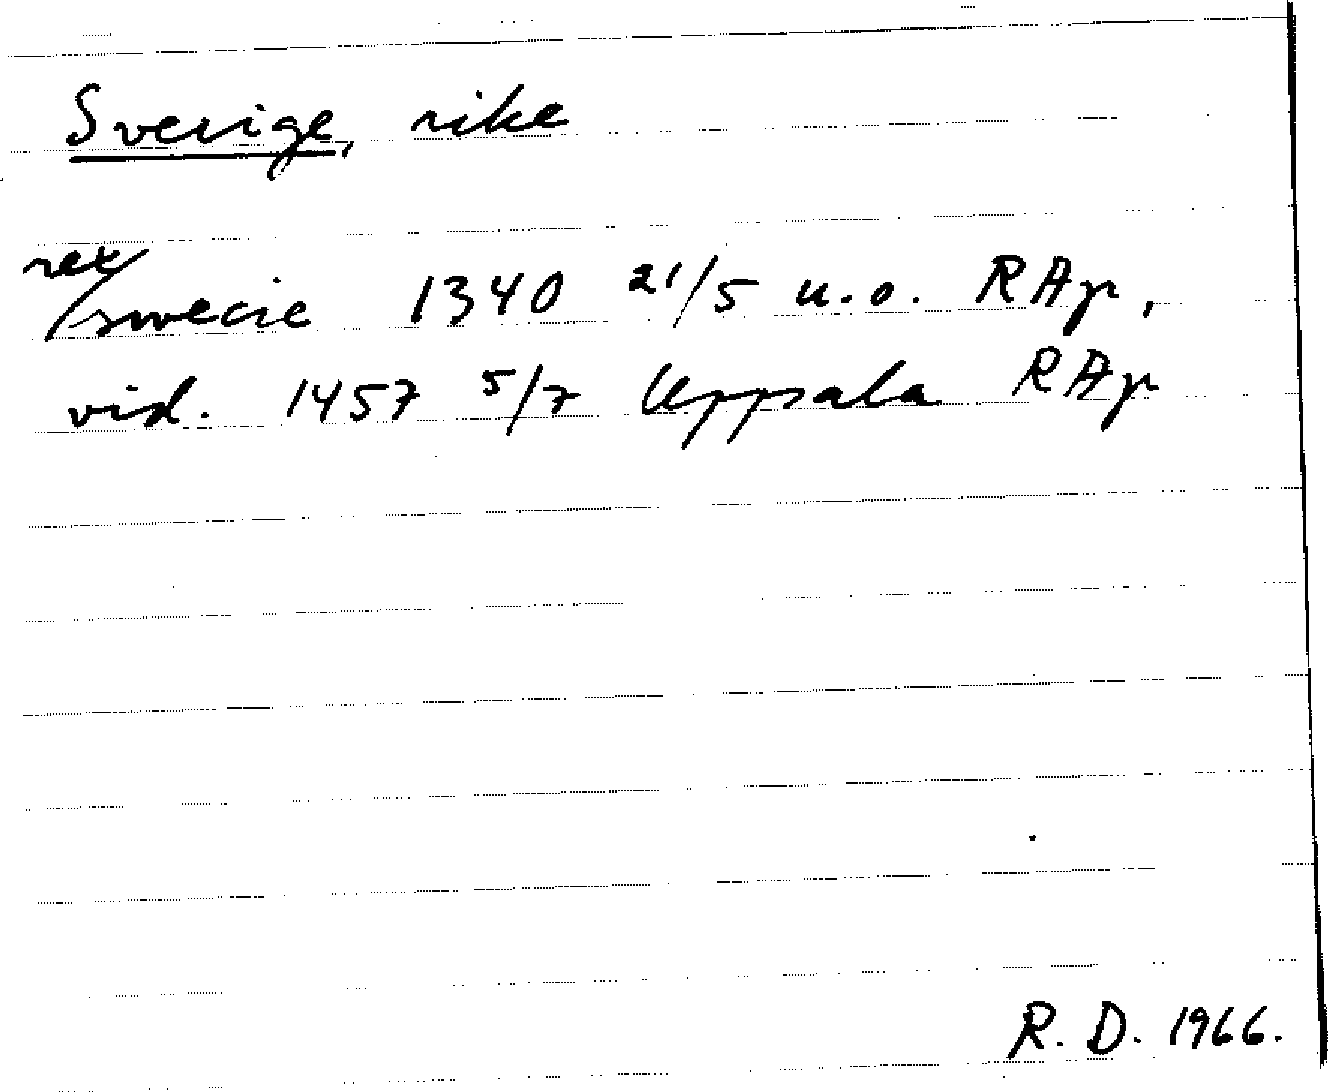 Sverige, rike
rex/swecie 1340 21/5 u.o. RAp,
vid. 1457 5/7 Uppsala RAp
R. D. 1966.